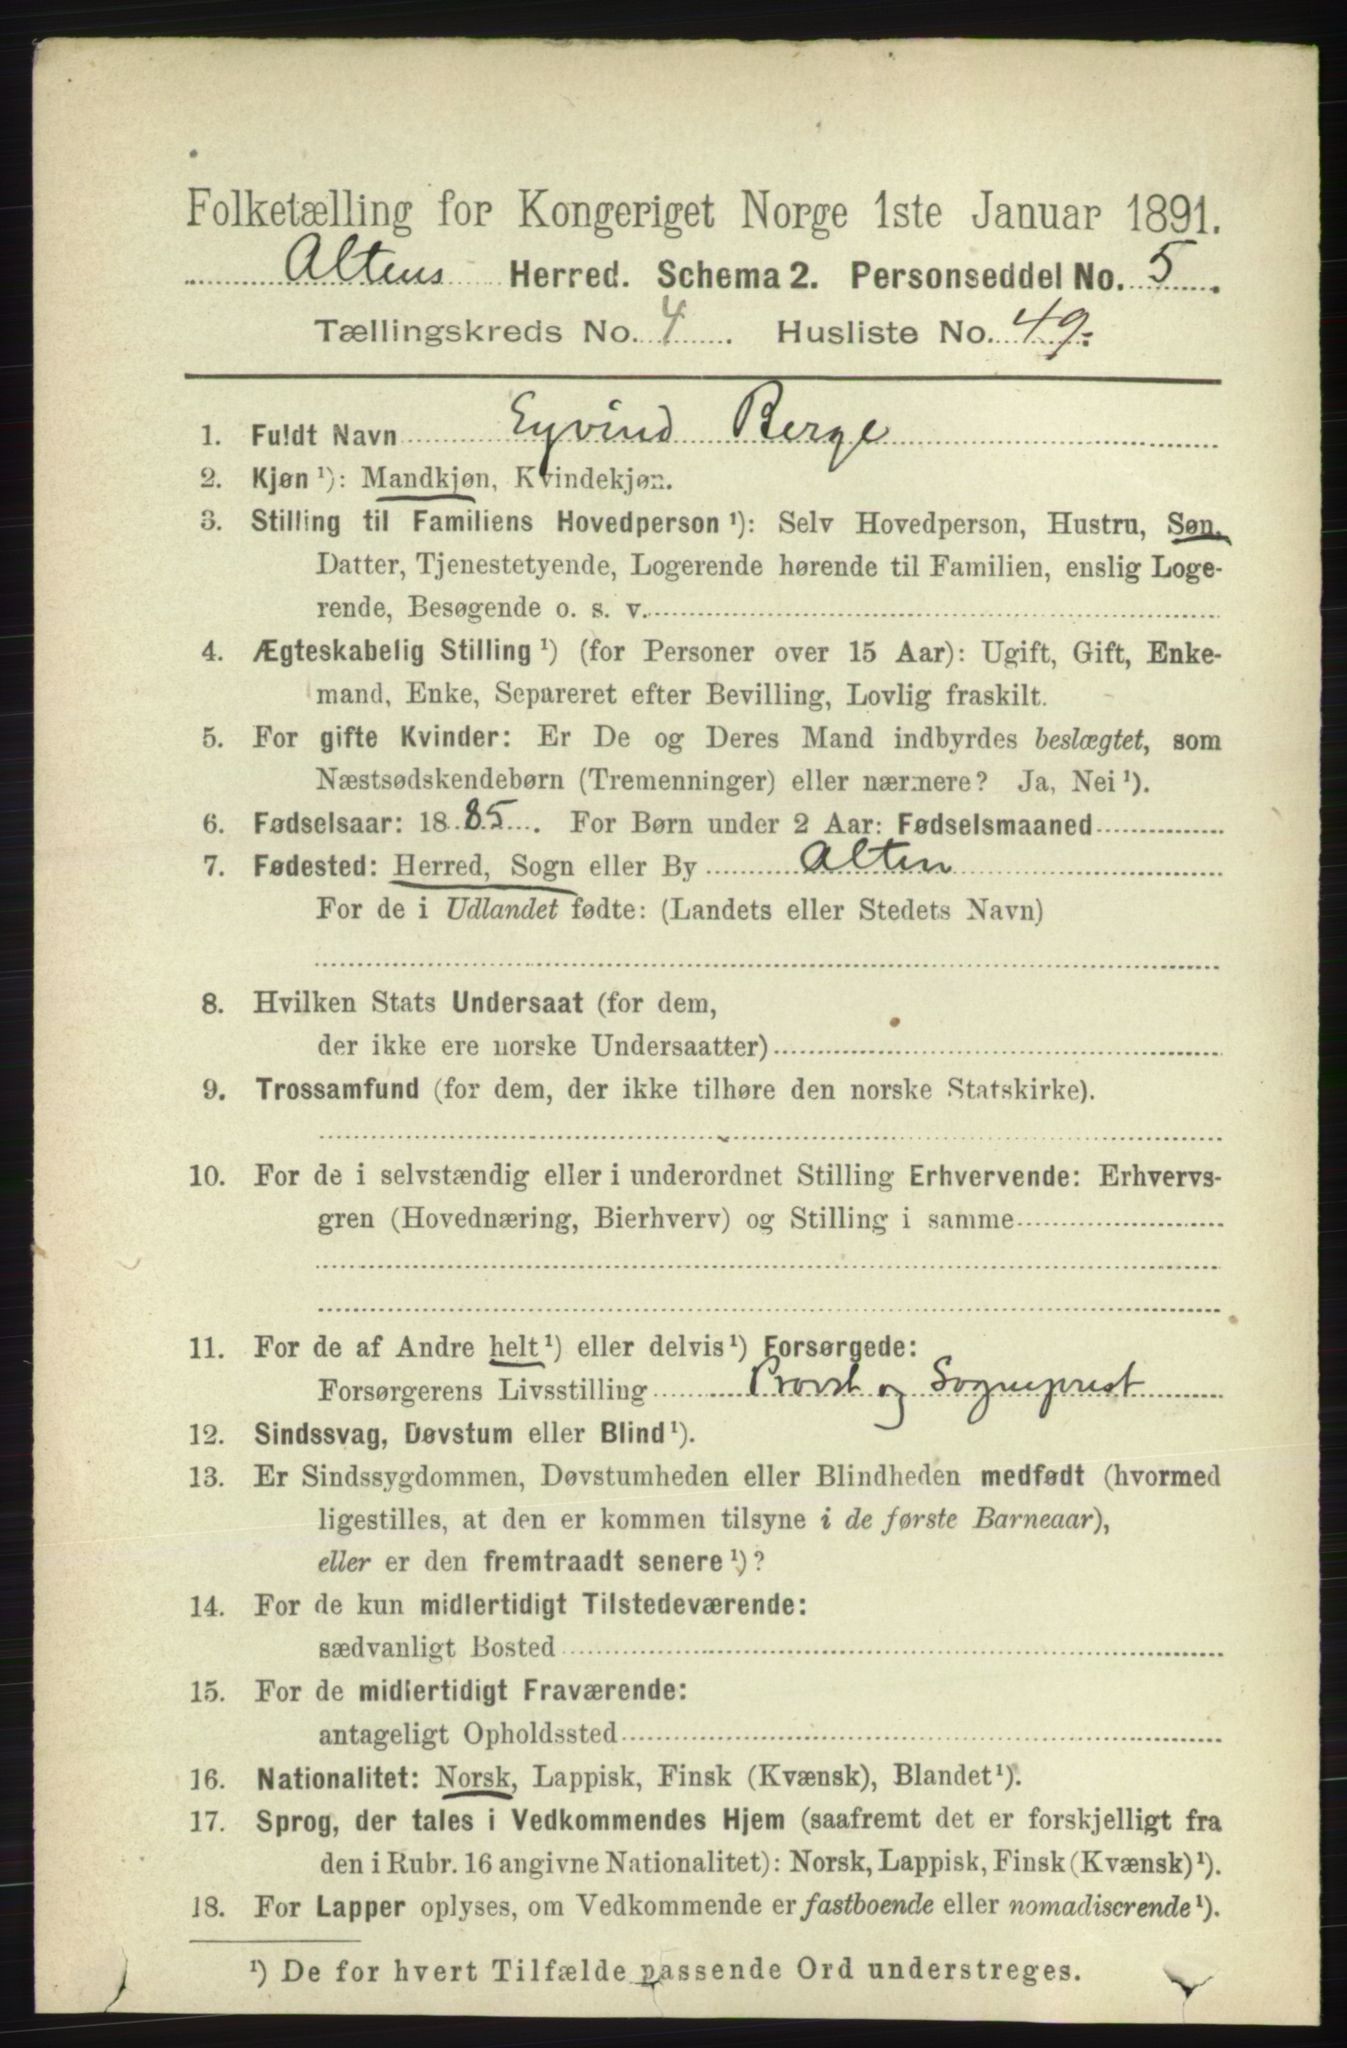 Folketælling for Kongeriget Norge 1ste Januar 1891.
Altens Herred. Schema 2. Personseddel No. 5.
Tællingskreds No. 4. Husliste No. 49.
1. Fuldt Navn Eyvind Berge
2. Kjøn¹): Mandkjøn, Kvindekjøn.
3. Stilling til Familiens Hovedperson¹): Selv Hovedperson, Hustru, Søn,
Datter, Tjenestetyende, Logerende hørende til Familien, enslig Loge-
rende, Besøgende o. s. v.
4. Ægteskabelig Stilling¹) (for Personer over 15 Aar): Ugift, Gift, Enke-
mand, Enke, Separeret efter Bevilling, Lovlig fraskilt.
5. For gifte Kvinder: Er De og Deres Mand indbyrdes beslægtet, som
Næstsødskendebørn (Tremenninger) eller nærmere? Ja, Nei¹).
6. Fødselsaar: 1885. For Børn under 2 Aar: Fødselsmaaned
7. Fødested: Herred, Sogn eller By Alten
For de i Udlandet fødte: (Landets eller Stedets Navn)
8. Hvilken Stats Undersaat (for dem,
der ikke ere norske Undersaatter)
9. Trossamfund (for dem, der ikke tilhøre den norske Statskirke).
10. For de i selvstændig eller i underordnet Stilling Erhvervende: Erhvervs-
gren (Hovednæring, Bierhverv) og Stilling i samme
11. For de af Andre helt¹) eller delvis¹) Forsørgede:
Forsørgerens Livsstilling Provst og Sogneprest
12. Sindssvag, Døvstum eller Blind¹).
13. Er Sindssygdommen, Døvstumheden eller Blindheden medfødt (hvormed
ligestilles, at den er kommen tilsyne i de første Barneaar),
eller er den fremtraadt senere¹)?
14. For de kun midlertidigt Tilstedeværende:
sædvanligt Bosted
15. For de midlertidigt Fraværende:
antageligt Opholdssted
16. Nationalitet: Norsk, Lappisk, Finsk (Kvænsk), Blandet¹).
17. Sprog, der tales i Vedkommendes Hjem (saafremt det er forskjelligt fra
den i Rubr. 16 angivne Nationalitet): Norsk, Lappisk, Finsk (Kvænsk)¹).
18. For Lapper oplyses, om Vedkommende er fastboende eller nomadiserende¹).
¹) De for hvert Tilfælde passende Ord understreges.